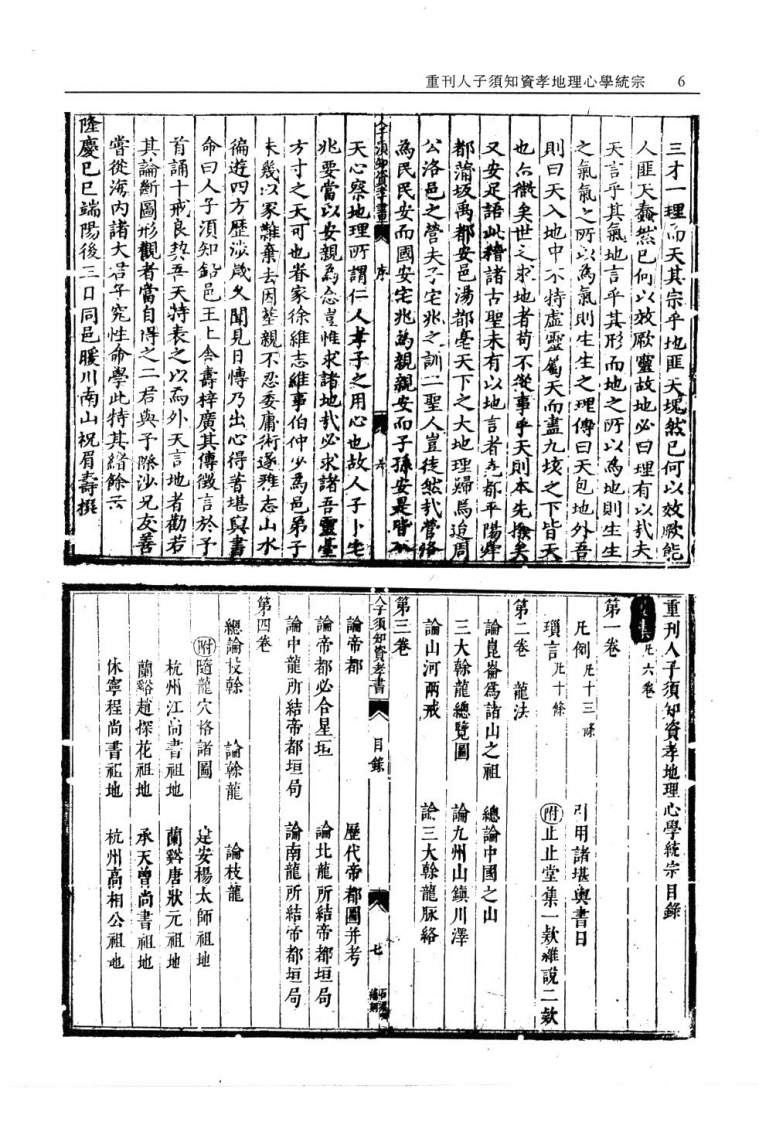 重刊人子須知資孝地理心學統宗 6
三才一理而天其宗乎地匪天塊然已何以效厥能
人匪天蠢然已何以效厥靈故地必曰理有以哉夫
天言乎其氣地言乎其形而地之所以為地則生生
之氣氣之所以為氣則生生之理傳曰天包地外吾
則曰天入地中不特虛靈屬天而盡九垓之下皆天
也亦微矣世之求地者苟不從事乎天則本先撥矣
又安足語此稽諸古聖未有以地言者堯都平陽舜
都蒲坂禹都安邑湯都亳天下之大地理歸焉迨周
公洛邑之營夫子宅兆之訓二聖人豈徒然哉營洛
為民民安而國安宅兆為親親安而子孫安是皆以
人子須知資孝書 序
天心察地理所謂仁人孝子之用心也故人子卜宅
兆要當以安親為念豈惟求諸地哉必求諸吾靈臺
方寸之天可也眷家徐維志維事伯仲少為邑弟子
未幾以家難棄去因塟親不忍委庸術遂雅志山水
徧遊四方歷涉歲久聞見日博乃出心得著堪輿書
命曰人子須知 邑王上舍壽梓廣其傳徵言於予
首誦十戒良契吾天特表之以為外天言地者勸若
其論斷圖形觀者當自得之二君與予際沙兄友善
嘗從海內諸大君子究性命學此特其緒餘云
隆慶己巳端陽後三日同邑暖川南山祝眉壽撰
重刊人子須知資孝地理心學統宗目錄
集 凡六卷
第一卷
凡例 凡十三條 引用諸堪輿書目
瑣言 凡十條 附止止堂集一款雜說二款
第二卷 龍法
論崑崙為諸山之祖 總論中國之山
三大榦龍總覽圖 論九州山鎮川澤
論山河兩戒 論三大榦龍脉絡
第三卷
人子須知資孝書 目錄 七
論帝都 歷代帝都圖并考
論帝都必合星垣 論北龍所結帝都垣局
論中龍所結帝都垣局 論南龍所結帝都垣局
第四卷
總論枝榦 論榦龍 論枝龍
附隨龍穴格諸圖 建安楊太師祖地
杭州江尚書祖地 蘭谿唐狀元祖地
蘭谿趙探花祖地 承天曾尚書祖地
休寧程尚書祖地 杭州高相公祖地